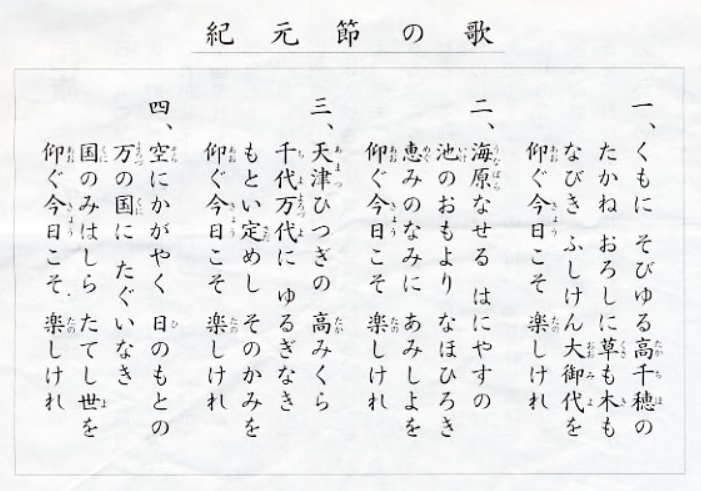 紀元節の歌
一、くもに そびゆる高千穂の
たかね おろしに草も木も
なびき ふしけん大御代を
仰ぐ今日こそ 楽しけれ
二、海原なせる はにやすの
池のおもより なほひろき
恵みのなみに あみしよを
仰ぐ今日こそ 楽しけれ
三、天津ひつぎの 高みくら
千代万代に ゆるぎなき
もとい定めし そのかみを
仰ぐ今日こそ 楽しけれ
四、空にかがやく 日のもとの
万の国に たぐいなき
国のみはしら たてし世を
仰ぐ今日こそ 楽しけれ